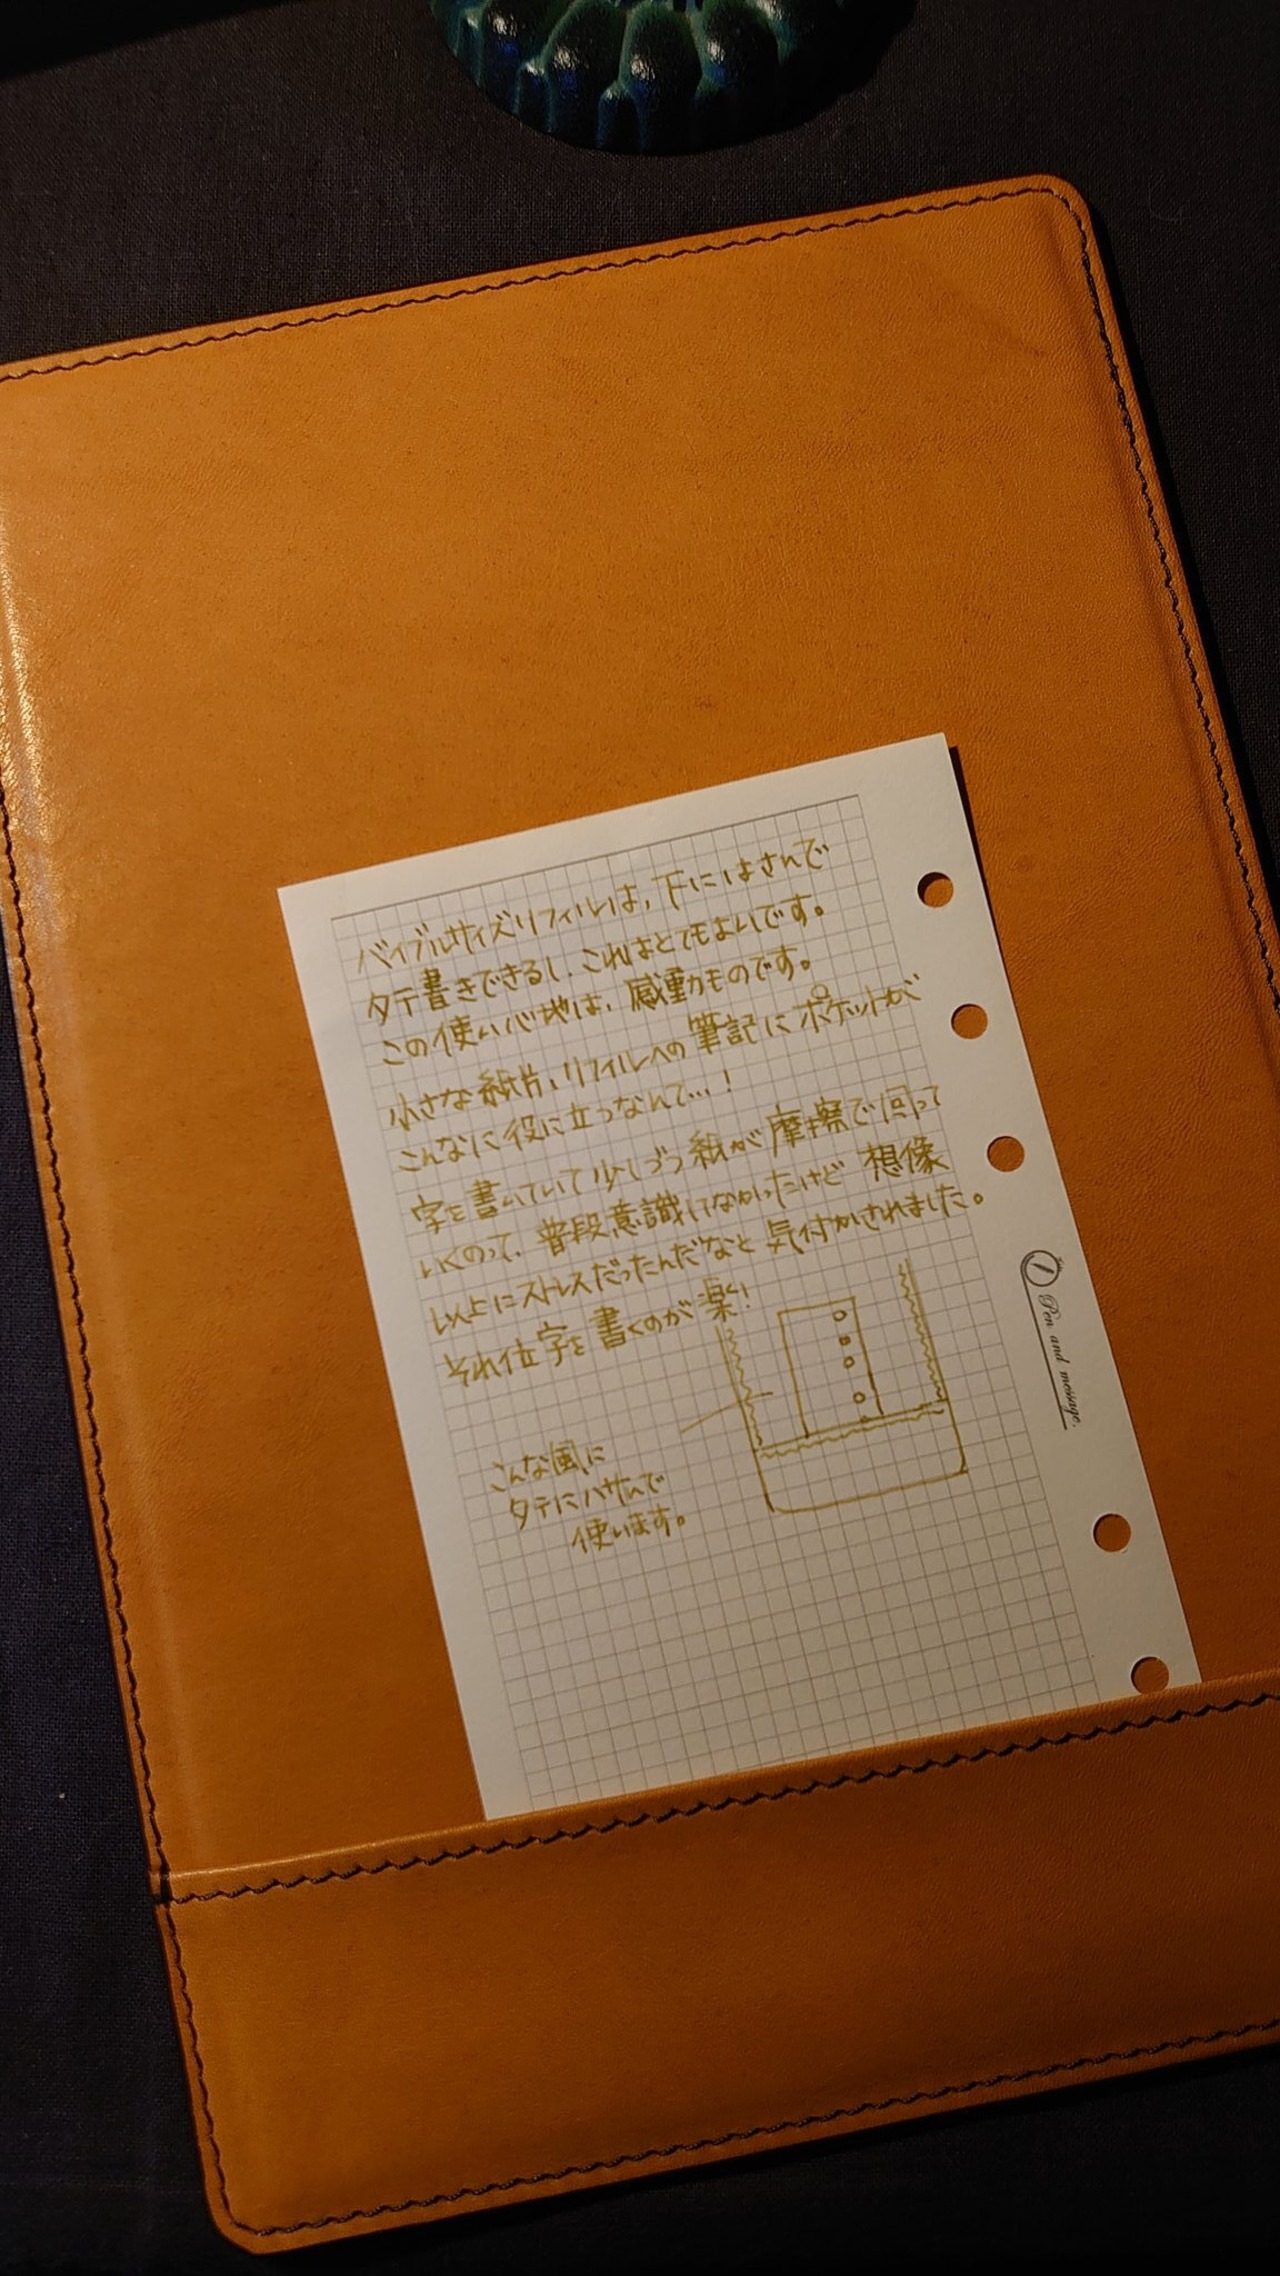 バイブルサイズリフィルは、下にはさんで
タテ書きできるし、これはとてもよいです。
この使い心地は、感動ものです。
小さな紙片、リフィルへの筆記にポケットが
こんなに役に立つなんて…!
字を書いていて少しづつ紙が摩擦で回って
いくのって、普段意識してなかったけど想像
以上にストレスだったんだなと気付かされました。
それ位字を書くのが楽!
こんな風に
タテにハサんで
使います。
Pen and message.